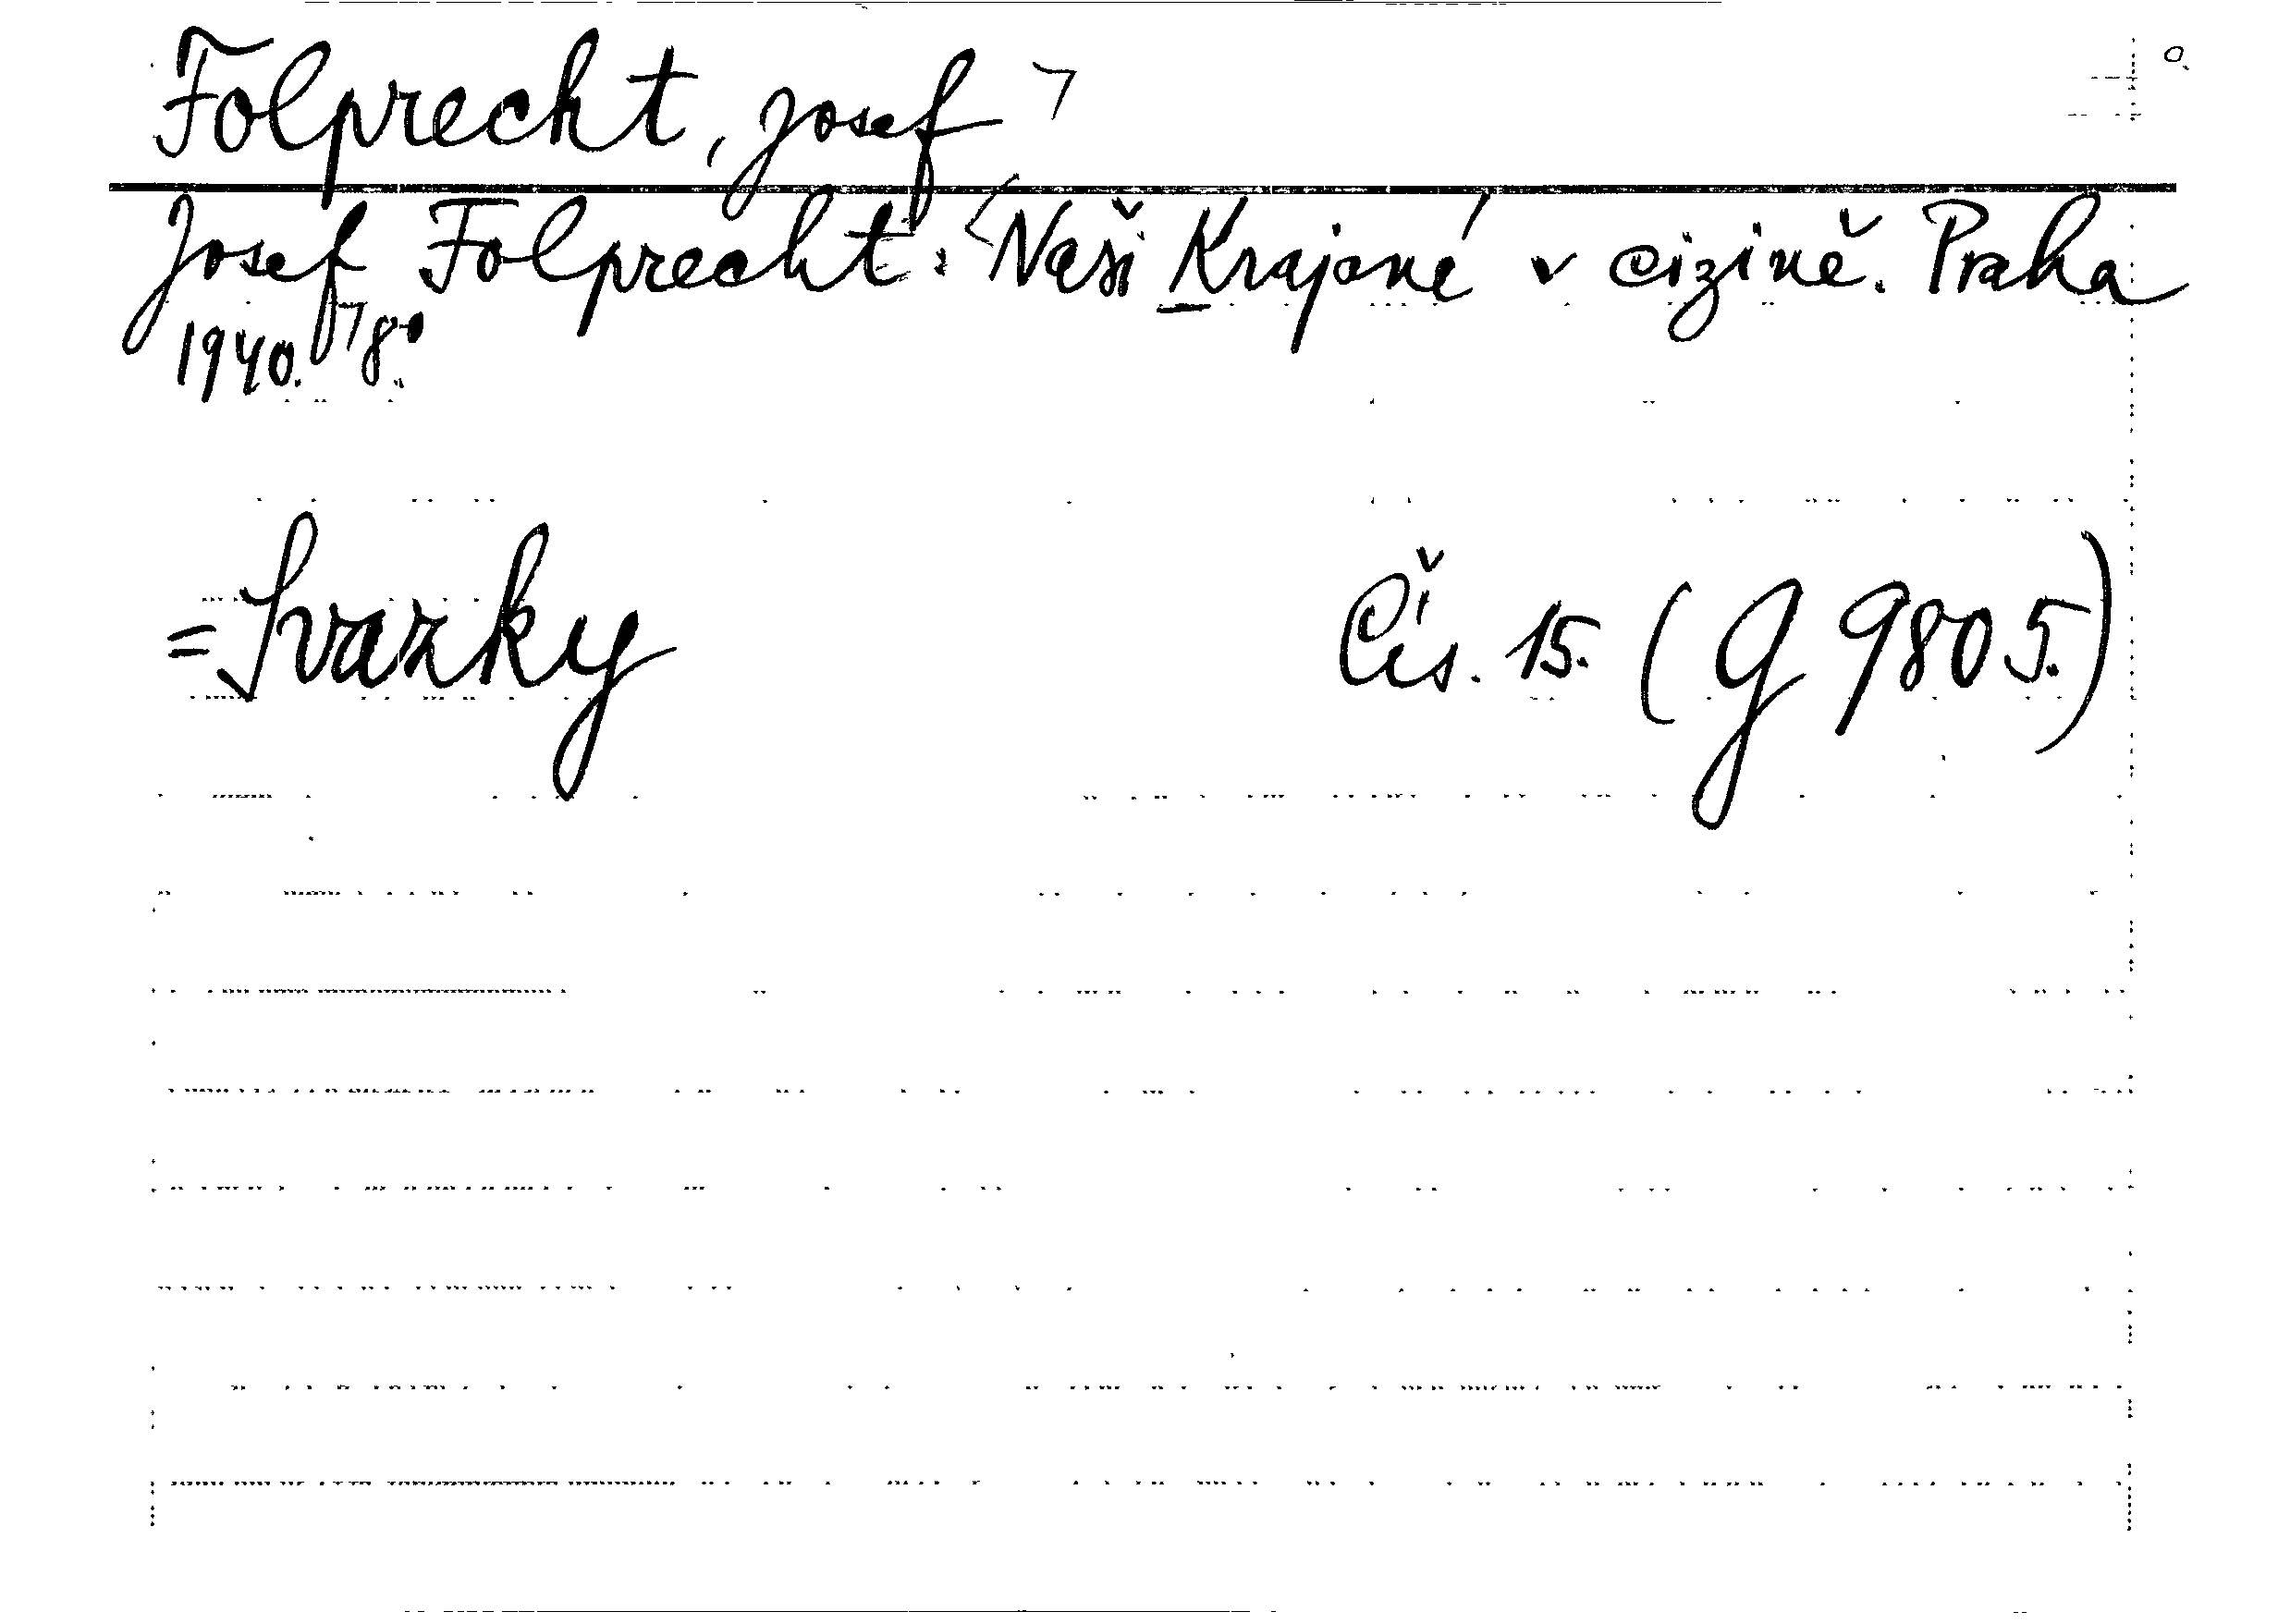 Folprecht, Josef ⁊
Josef Folprecht: <Naši Krajané v cizině. Praha
1940.⁊ 8°.
= Svazky Čís. 15. (G 9805.)